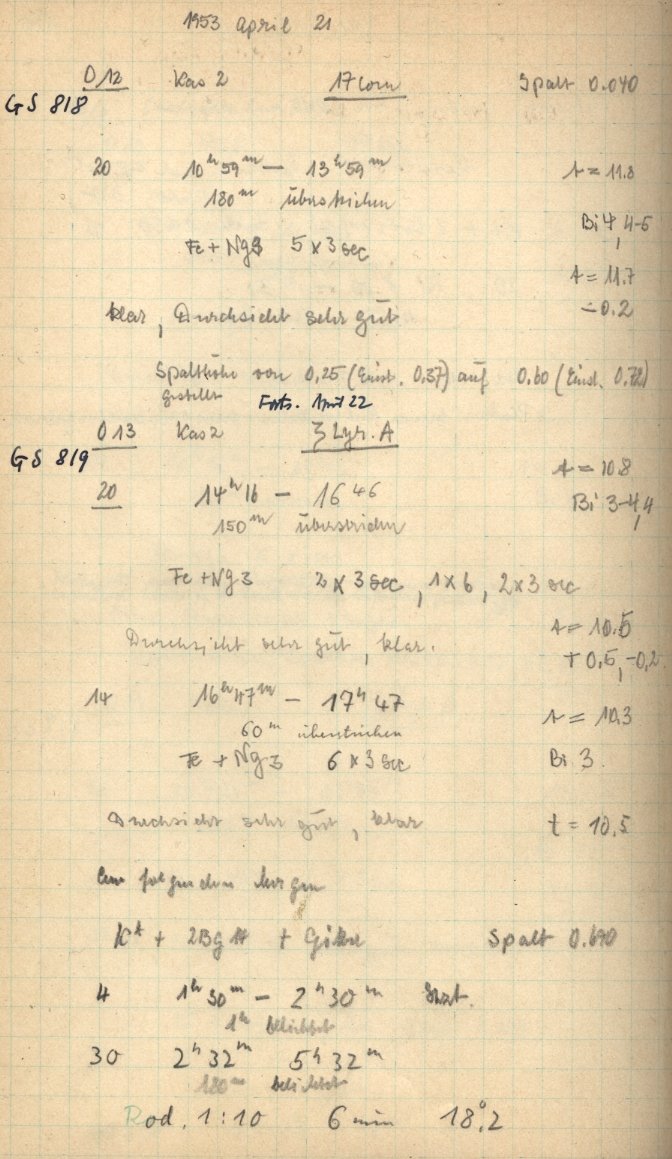 1953 April 21
O 12 Kas 2 17 Com Spalt 0.040
GS 818
20 10ʰ 59ᵐ — 13ʰ 59ᵐ t = 11.8
180ᵐ überstrichen
Bi 4, 4-5
Fe + Ng3 5 x 3 sec
t = 11.7
-0.2
klar, Durchsicht sehr gut
Spalthöhe von 0,25 (Einst. 0,37) auf 0.60 (Einst. 0.72)
gestellt Forts. April 22
O 13 Kas 2 ζ Lyr. A
GS 819
t = 10.8
20 14ʰ 16 — 16 46
Bi 3-4, 4
150ᵐ überstrichen
Fe + Ng3 2 x 3 sec, 1 x 6, 2 x 3 sec
t = 10.5
Durchsicht sehr gut, klar.
+0,5, -0,2
14 16ʰ 47ᵐ — 17ʰ 47
t = 10,3
60ᵐ überstrichen
Fe + Ng3 6 x 3 sec Bi 3.
Durchsicht sehr gut, klar t = 10,5
Am folgenden Morgen
+ 2Bg + Spalt
4 1ʰ 30ᵐ — 2ʰ 30ᵐ
1ʰ belichtet
30 2ʰ 32ᵐ 5ʰ 32ᵐ
180ᵐ belichtet
Rod. 1:10 6 min 18°,2